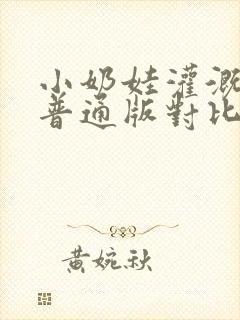 小奶娃灌溉
普通版對比
黃婉秋